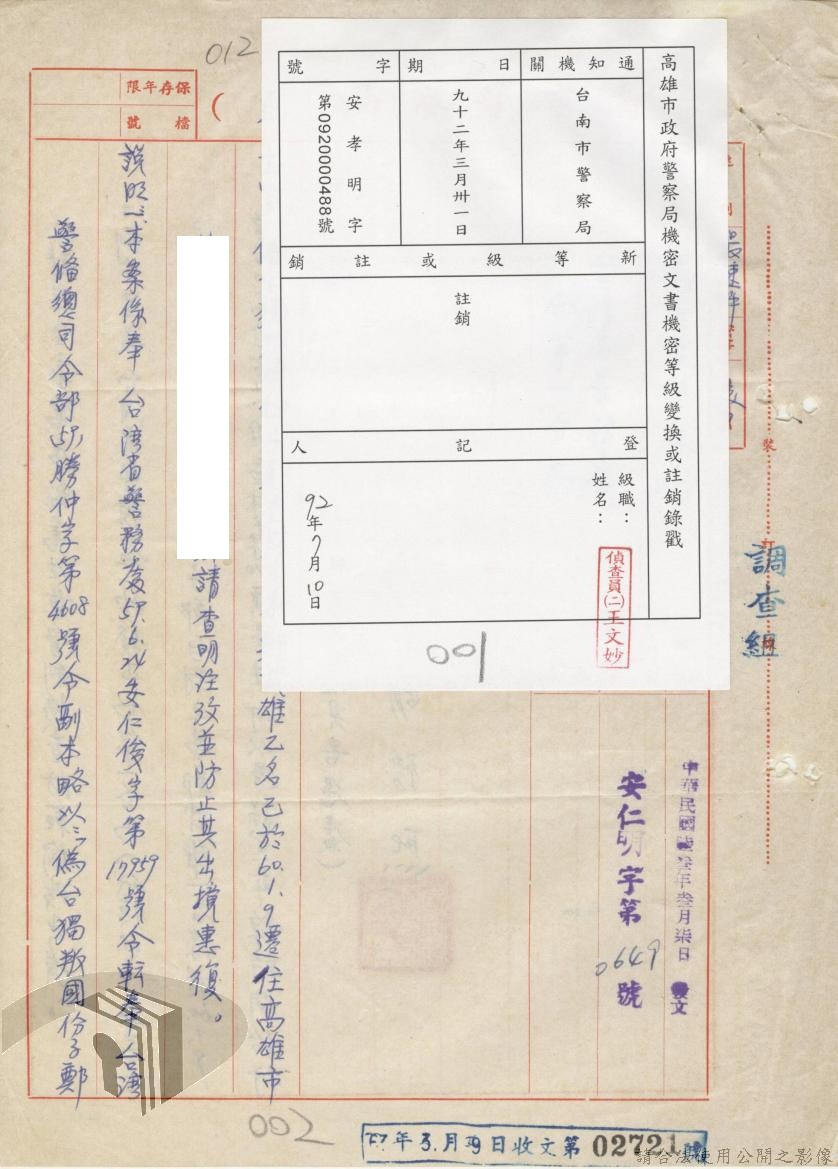 012
高雄市政府警察局機密文書機密等級變換或註銷錄戳
通知機關
台南市警察局
日期
九十二年三月卅一日
字號
安孝明字
第0920000488號
新等級或註銷
註銷
登記人
級職：
姓名：
偵查員(二)王文妙
92年7月10日
001
調查組
裝
訂
線
中華民國陸叁年叁月柒日發文
安仁明字第
0649
號
保存年限
檔號
雄乙名已於60.1.9遷住高雄市
請查明注攷並防止其出境惠復。
說明：本案係奉 台湾省警務處57.6.24安仁俊字第17959號令転奉 台湾
警備總司令部57.勝仲字第4608號令副本略以：偽台獨叛國份子鄭
002
年3月9日收文第02721號
請合法使用公開之影像